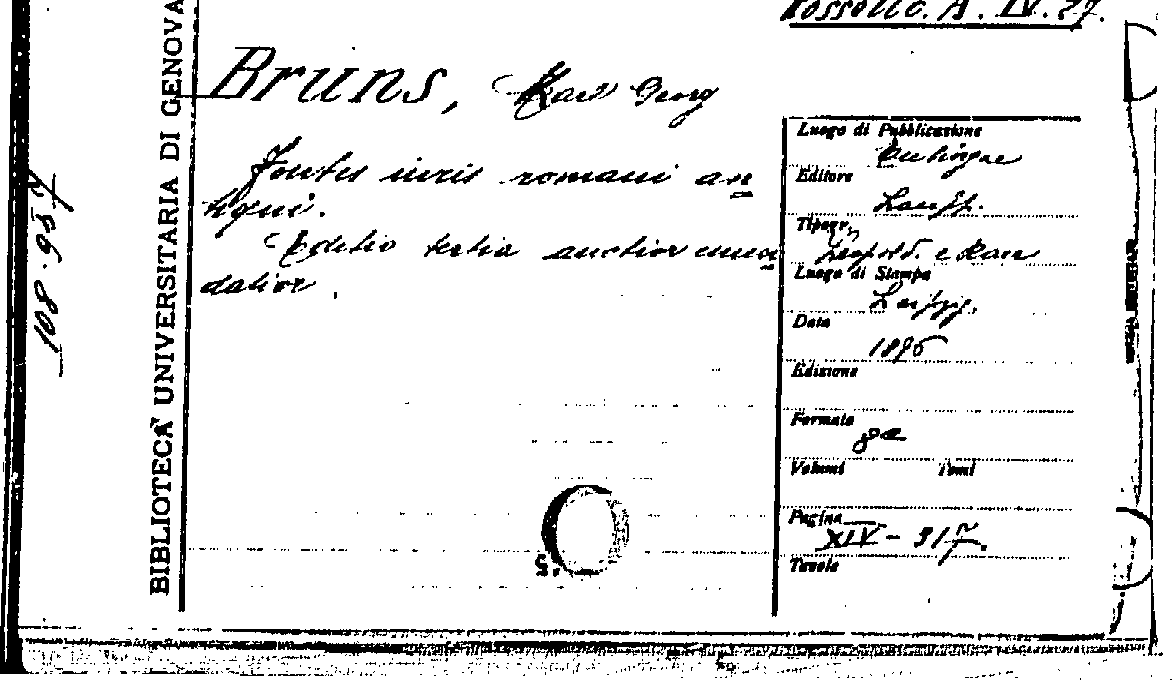 Rossello. A. IV. 27.
BIBLIOTECA UNIVERSITARIA DI GENOVA
Bruns, Karl Georg
Fontes iuris romani an
tiqui.
Editio tertia auctior emen
datior.
Luogo di Pubblicazione
Tubingae
Editore
Laupp.
Tipogr.
Luogo di Stampa
Leipzig.
Data
1876
Edizione
Formato
8°
Volumi Tomi
Pagina
XIV - 317.
Tavole
5.